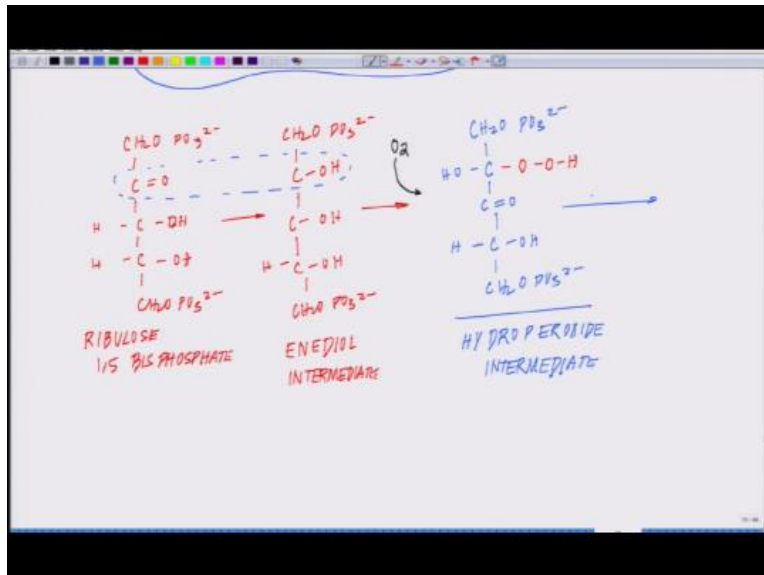 CH2O PO3 2-
C=O
H - C - OH
H - C - OH
CH2O PO3 2-
RIBULOSE
1,5 BISPHOSPHATE
CH2O PO3 2-
C-OH
C-OH
H-C-OH
CH2O PO3 2-
ENEDIOL
INTERMEDIATE
O2
CH2O PO3 2-
HO-C-O-O-H
C=O
H-C-OH
CH2O PO3 2-
HYDROPEROXIDE
INTERMEDIATE